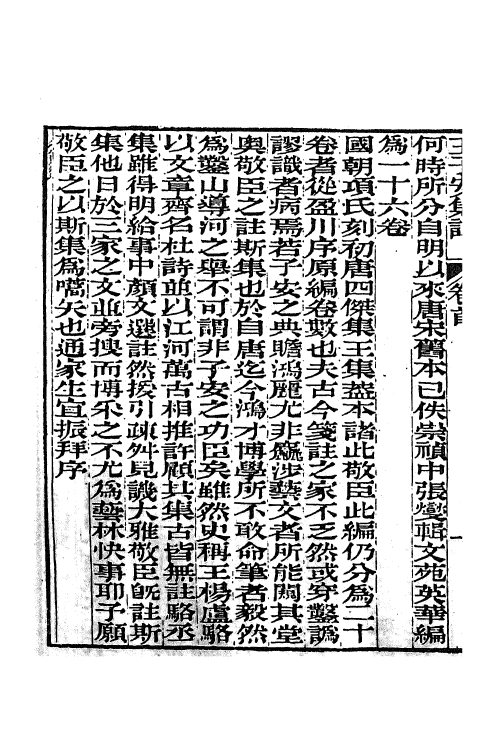 王子安集註 卷首 一
何時所分自明以來唐宋舊本已佚崇禎中張燮輯文苑英華編
為一十六卷
國朝項氏刻初唐四傑集王集蓋本諸此敬臣此編仍分為二十
卷者從盈川序原編卷數也夫古今箋註之家不乏然或穿鑿譌
謬識者病焉若子安之典贍鴻麗尤非麤涉藝文者所能闚其堂
奧敬臣之註斯集也於自唐迄今鴻才博學所不敢命筆者毅然
為鑿山導河之舉不可謂非子安之功臣矣雖然史稱王楊盧駱
以文章齊名杜詩並以江河萬古相推許顧其集古皆無註駱丞
集雖得明給事中顏文選註然援引疎舛見譏大雅敬臣旣註斯
集他日於三家之文並旁搜而博釆之不尤為藝林快事耶予願
敬臣之以斯集為嚆矢也通家生宣振拜序